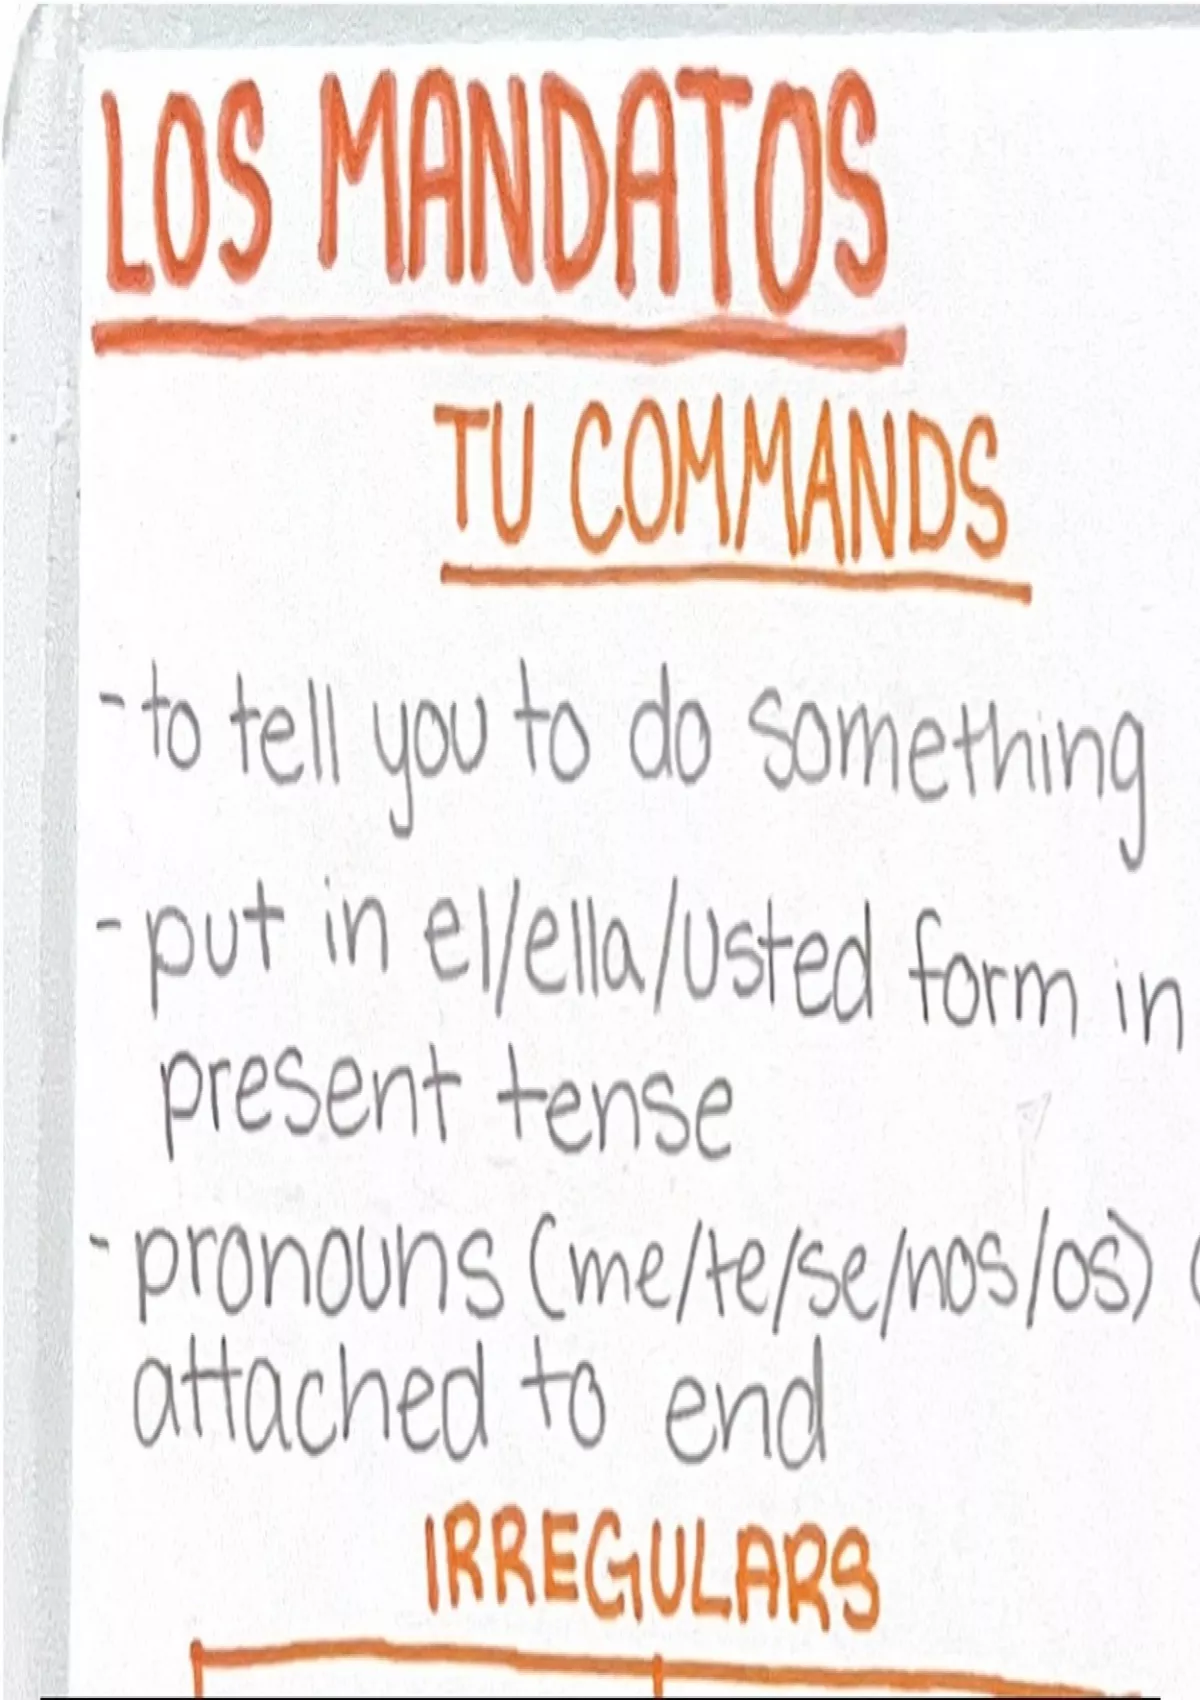 LOS MANDATOS
TU COMMANDS
- to tell you to do something
- put in el/ella/usted form in
present tense
- pronouns (me/te/se/nos/os)
attached to end
IRREGULARS